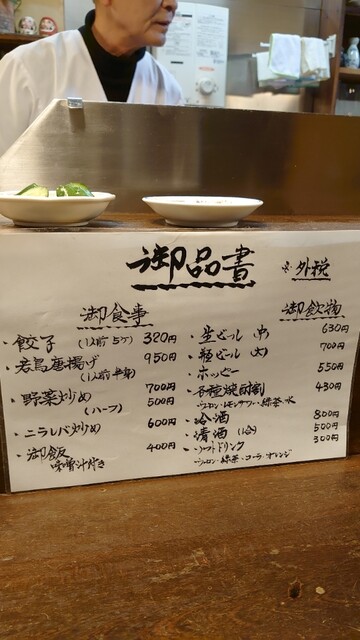 御品書
※外税
御食事
・餃子 (1人前 5ケ) 320円
・若鳥唐揚げ 950円
(1人前 半身)
・野菜炒め 700円
(ハーフ) 500円
・ニラレバ炒め 600円
・御飯 400円
味噌汁付き
御飲物
・生ビール (中) 630円
・瓶ビール (大) 700円
・ホッピー 550円
・各種焼酎割 430円
ウーロン・レモンサワー・緑茶・水
・冷酒 800円
・清酒 (1合) 500円
・ソフトドリンク 300円
ウーロン・緑茶・コーラ・オレンジ